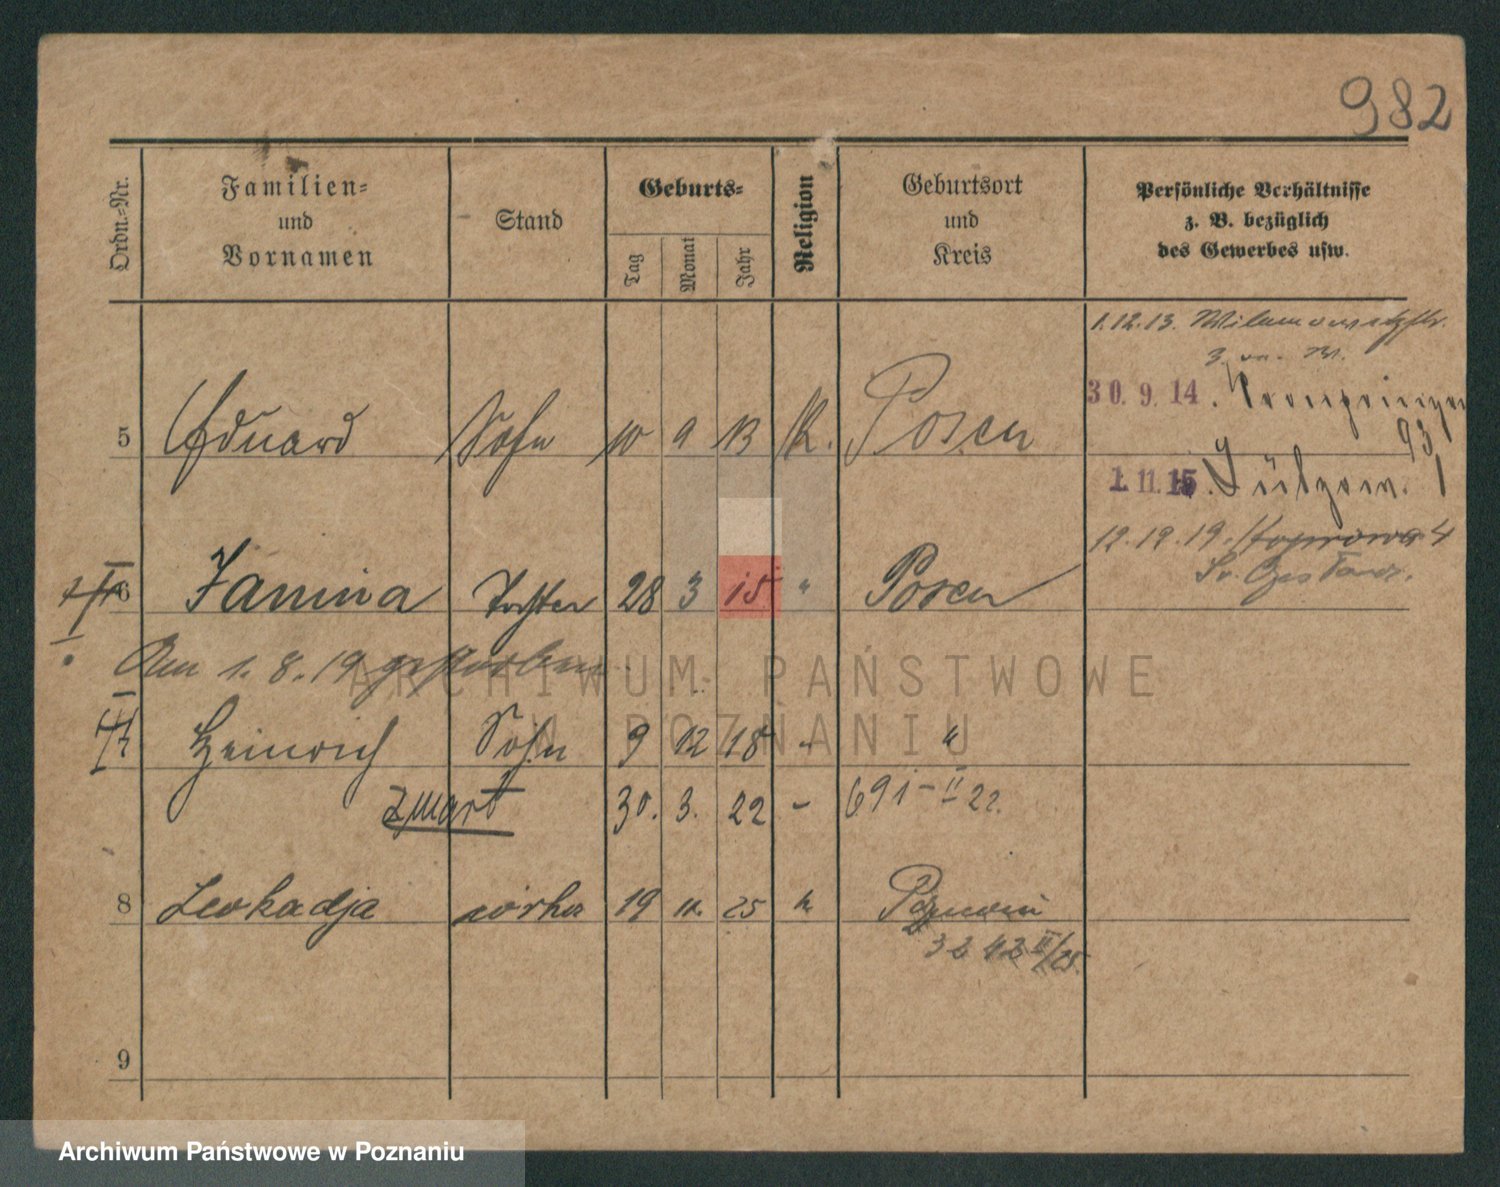 982
Ordn.-Nr.
Familien-
und
Vornamen
Stand
Geburts-
Tag
Monat
Jahr
Religion
Geburtsort
und
Kreis
Persönliche Verhältnisse
z. B. bezüglich
des Gewerbes usw.
1.12.13.
30.9.14.
5 Eduard Sohn 10 9 13 K. Posen
1.11.15.
12.12.19.
6 Janina Tochter 28 3 15. " Posen
Am 1.8.19 gestorben.
7 Heinrich Sohn 9 12 18 - "
zmarł 30. 3. 22 - 691-II 22.
8 Leokadja córka 19 11. 25 k Poznań
3242 II/25.
9
ARCHIWUM PAŃSTWOWE
W POZNANIU
Archiwum Państwowe w Poznaniu